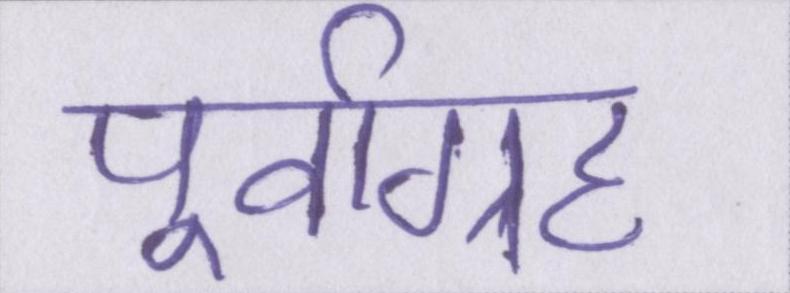 पूर्वाग्रह